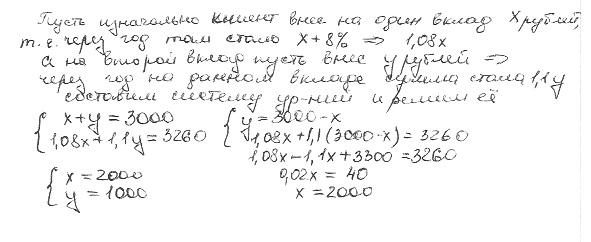 Пусть изначально клиент внес на один вклад x рублей,
т.е. через год там стало x+8% ⇒ 1,08x
а на второй вклад пусть внес y рублей ⇒
через год на данном вкладе сумма стала 1,1y
составим систему ур-ний и решим её
{ x+y=3000 { y=3000-x
1,08x+1,1y=3260 1,08x+1,1(3000-x)=3260
1,08x-1,1x+3300=3260
{ x=2000 0,02x=40
y=1000 x=2000